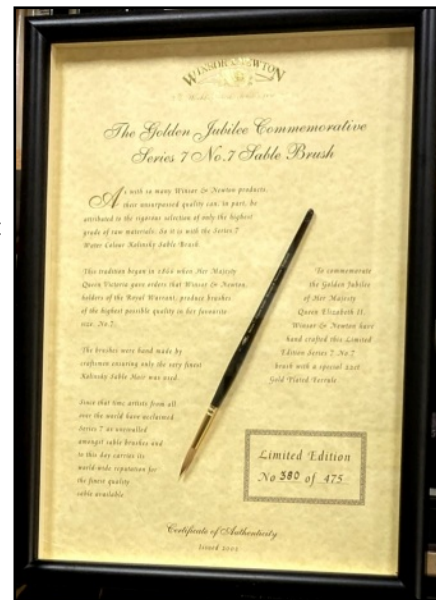 WINSOR AND NEWTON
The Golden Jubilee Commemorative
Series 7 No.7 Sable Brush
As with so many Winsor & Newton products,
their unsurpassed quality can, in part, be
attributed to the rigorous selection of only the highest
grade of raw materials. So it is with the Series 7
Water Colour Kolinsky Sable Brush.
This tradition began in 1866 when Her Majesty
Queen Victoria gave orders that Winsor & Newton,
holders of the Royal Warrant, produce brushes
of the highest possible quality in her favourite
size: No 7.
The brushes were hand made by
craftsmen ensuring only the very finest
Kolinsky Sable Hair was used.
Since that time artists from all
over the world have acclaimed
Series 7 as unrivalled
amongst sable brushes and
to this day carries its
world-wide reputation for
the finest quality
sable available
To commemorate
the Golden Jubilee
of Her Majesty
Queen Elizabeth II,
Winsor & Newton have
hand crafted this Limited
Edition Series 7 No 7
brush with a special
Gold Plated Ferrule
Limited Edition
No 380 of 475
Certificate of Authenticity
Issued 2002